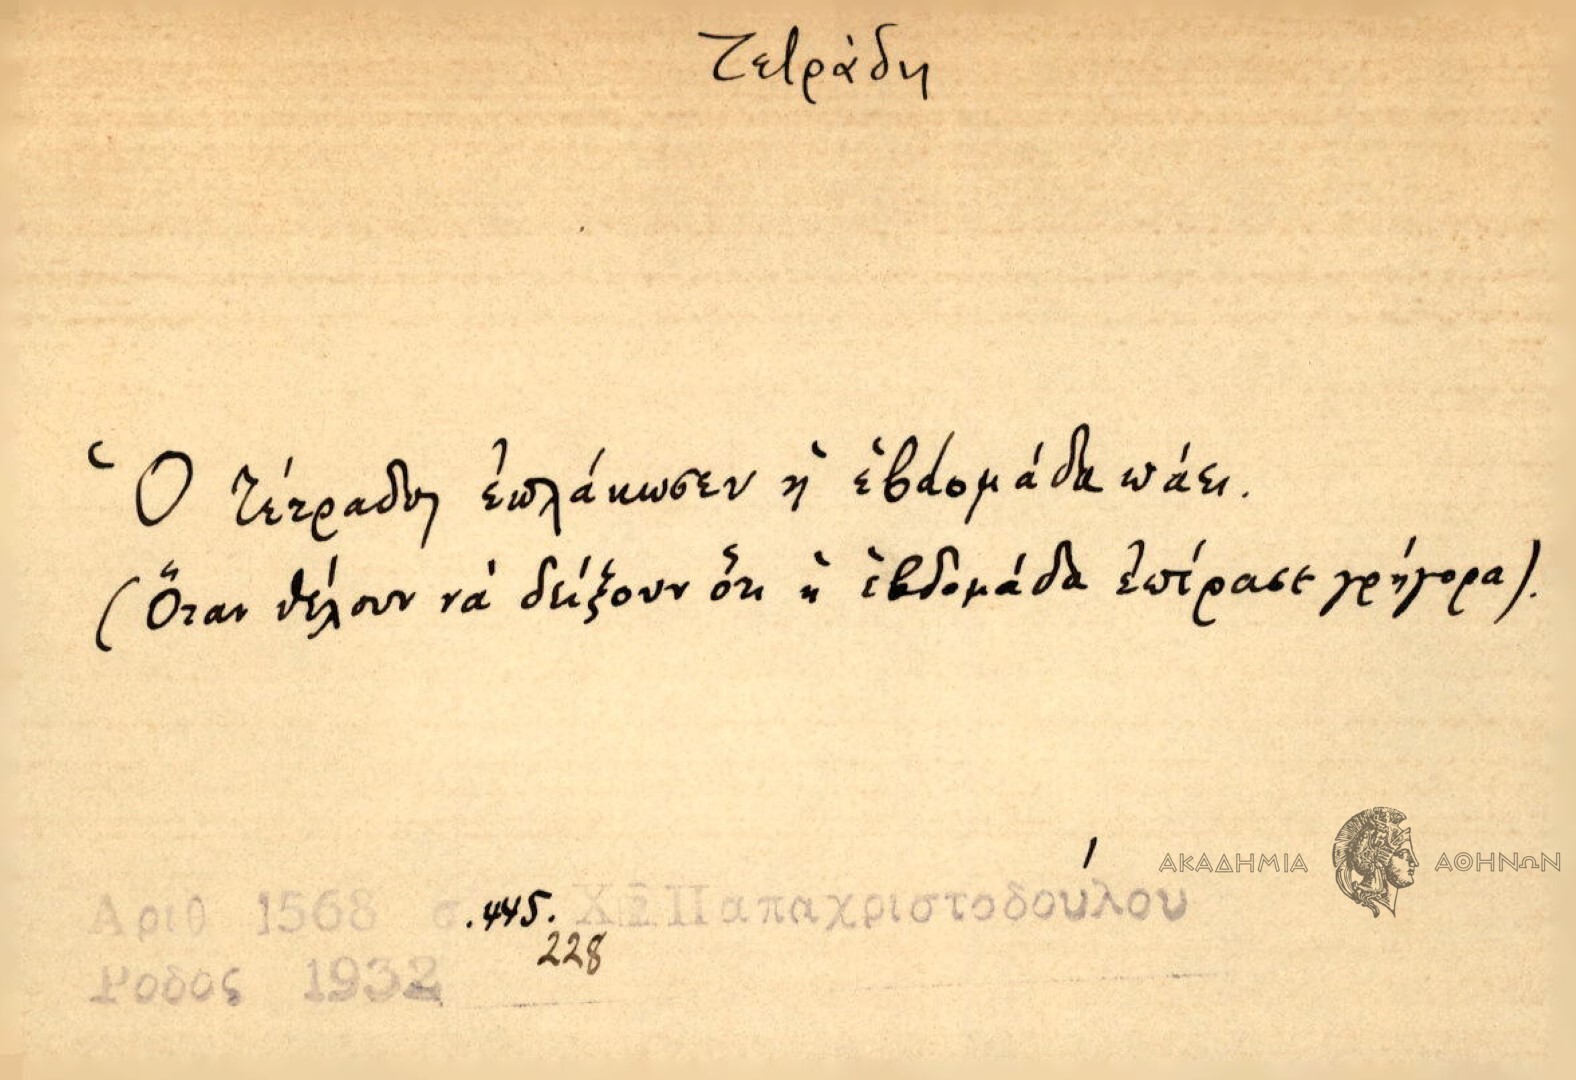 Τετράδη
Ὁ Τέτραδης ἐπλάκωσεν ἡ ἑβδομάδα πάει.
(Ὅταν θέλουν νὰ δείξουν ὅτι ἡ ἑβδομάδα ἐπέρασε γρήγορα).
ΑΚΑΔΗΜΙΑ ΑΘΗΝΩΝ
Αριθ 1568 σ. 445. Χ Παπαχριστοδούλου
228
Ροδος 1932